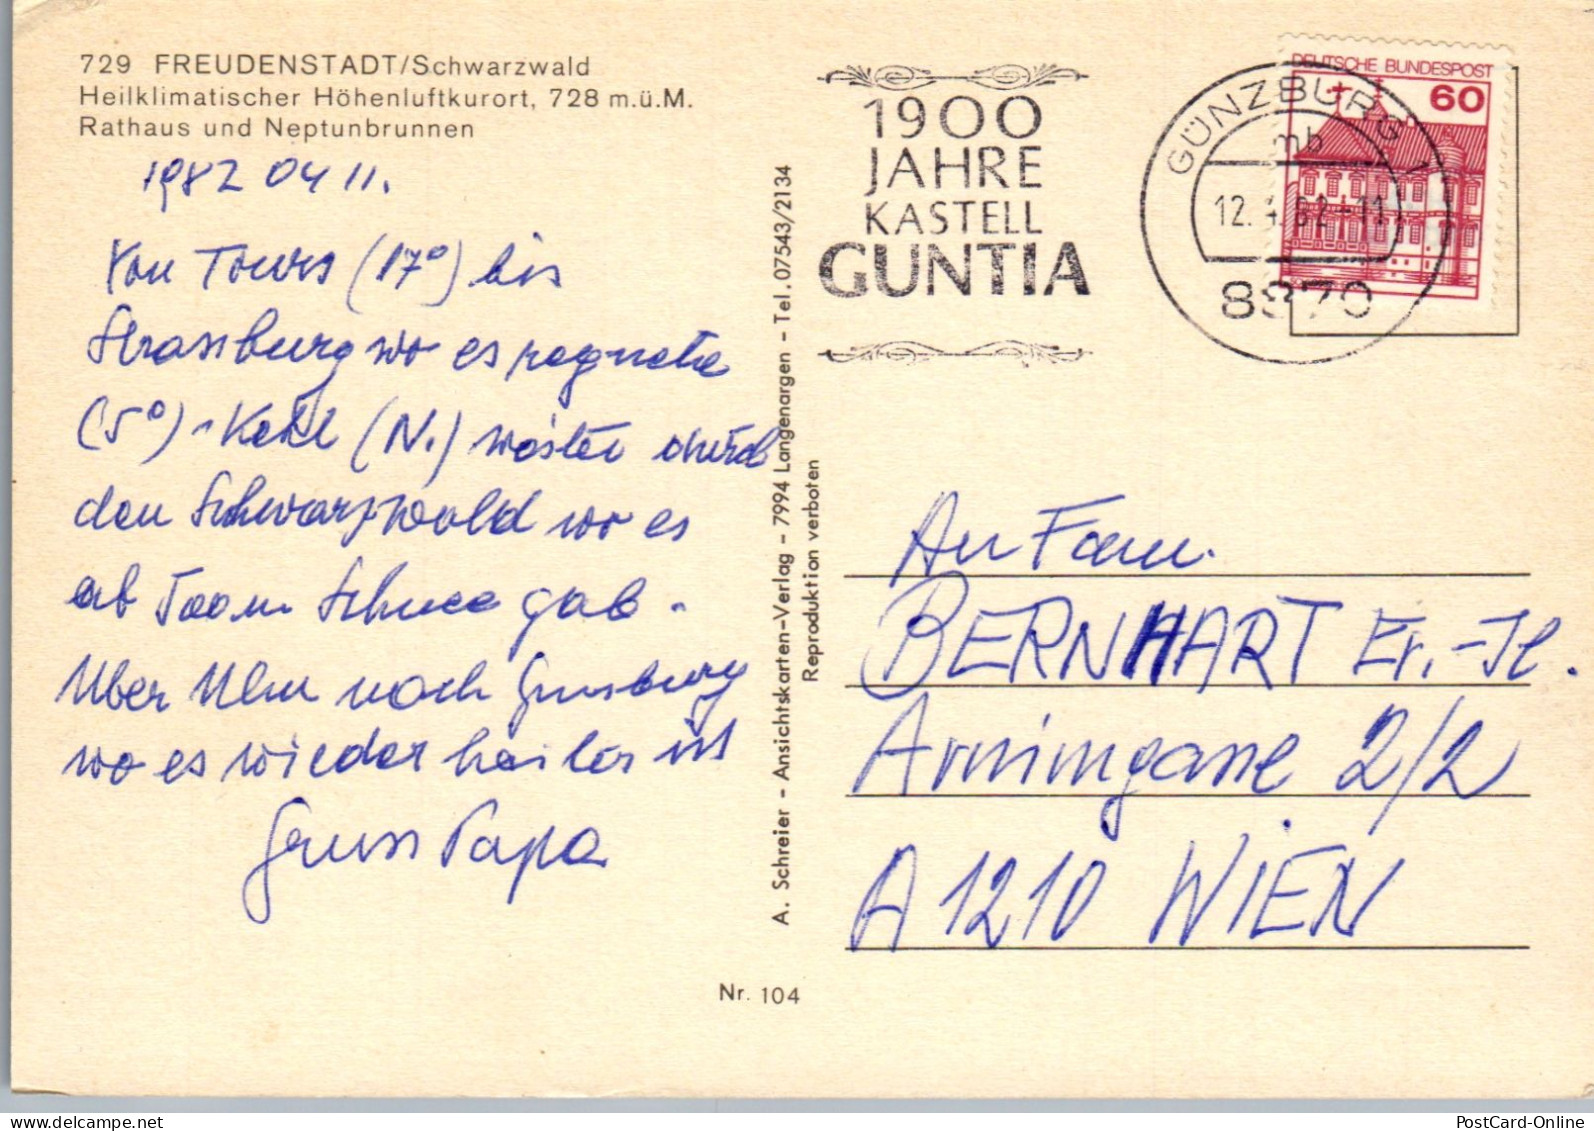 729 FREUDENSTADT/Schwarzwald
Heilklimatischer Höhenluftkurort, 728 m.ü.M.
Rathaus und Neptunbrunnen
1982 04 11.
Von Tours (17°) bis
Strassburg wo es regnete
(5°) - Kehl (N.) weiter durch
den Schwarzwald wo es
ab 700 m Schnee gab.
Über Ulm nach Günsburg
wo es wieder heiter ist
Gruss Papa
A. Schreier - Ansichtskarten-Verlag - 7994 Langenargen - Tel. 07543/2134
Reproduktion verboten
Nr. 104
1900
JAHRE
KASTELL
GUNTIA
GÜNZBURG 1
mb
12.4.82-11
8870
DEUTSCHE BUNDESPOST
60
An Fam.
BERNHART Er.-Il.
Arnimgasse 2/2
A 1210 WIEN
www.delcampe.net
PostCard-Online